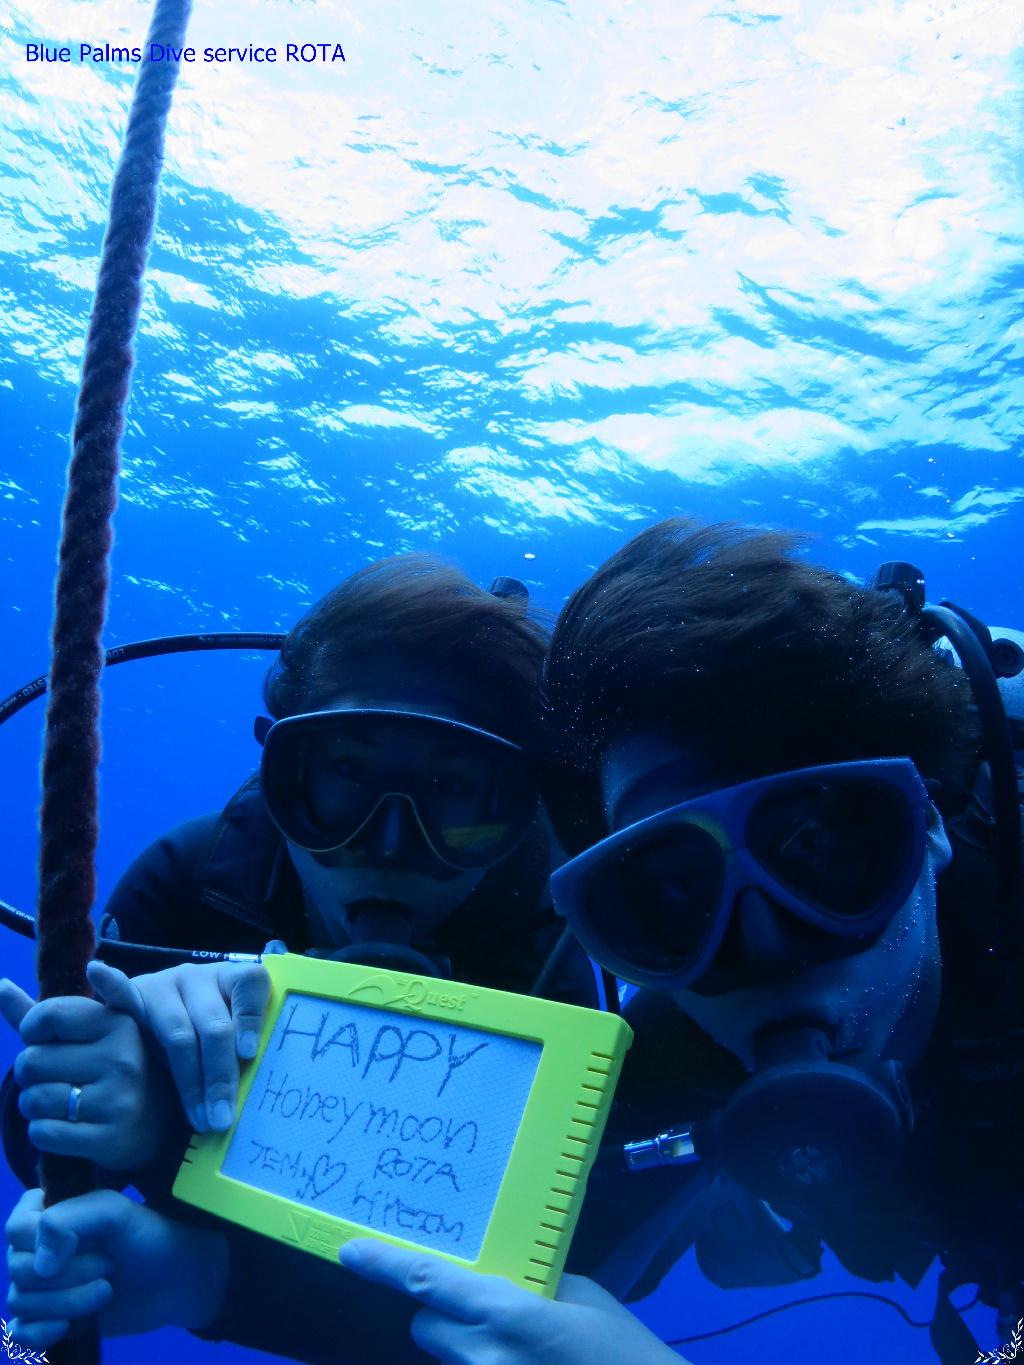 Blue Palms Dive service ROTA
Quest
HAPPY
Honeymoon
ROTA
LOW